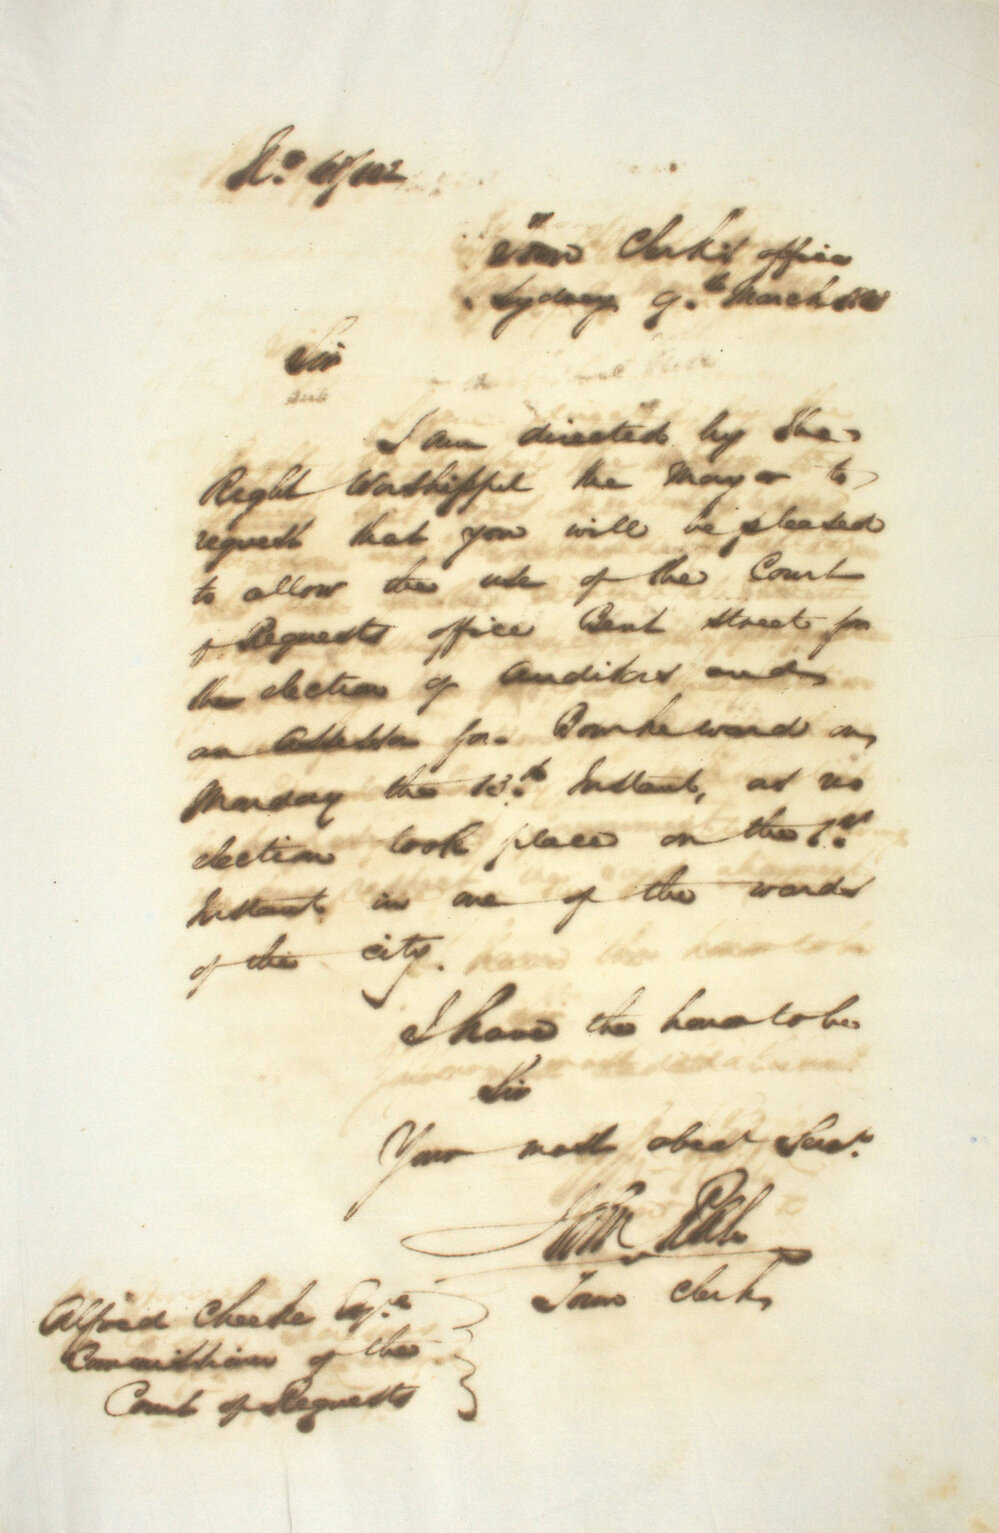 Town Clerk's office
Sydney 9.th March
Sir
I am directed by the
Right Worshipful the Mayor to
request that you will be pleased
to allow the use of the Court
of Requests office Bent Street for
the election of Auditors and
an Assessor for Bourke ward on
Monday the 13.th Instant, as no
election took place on the 1.st
Instant in one of the wards
of the city.
I have the honor to be
Sir
Your most obedt Servt.
John
Town Clerk
Alfred Cheeke Esq.re
Commissioner of the
Court of Requests